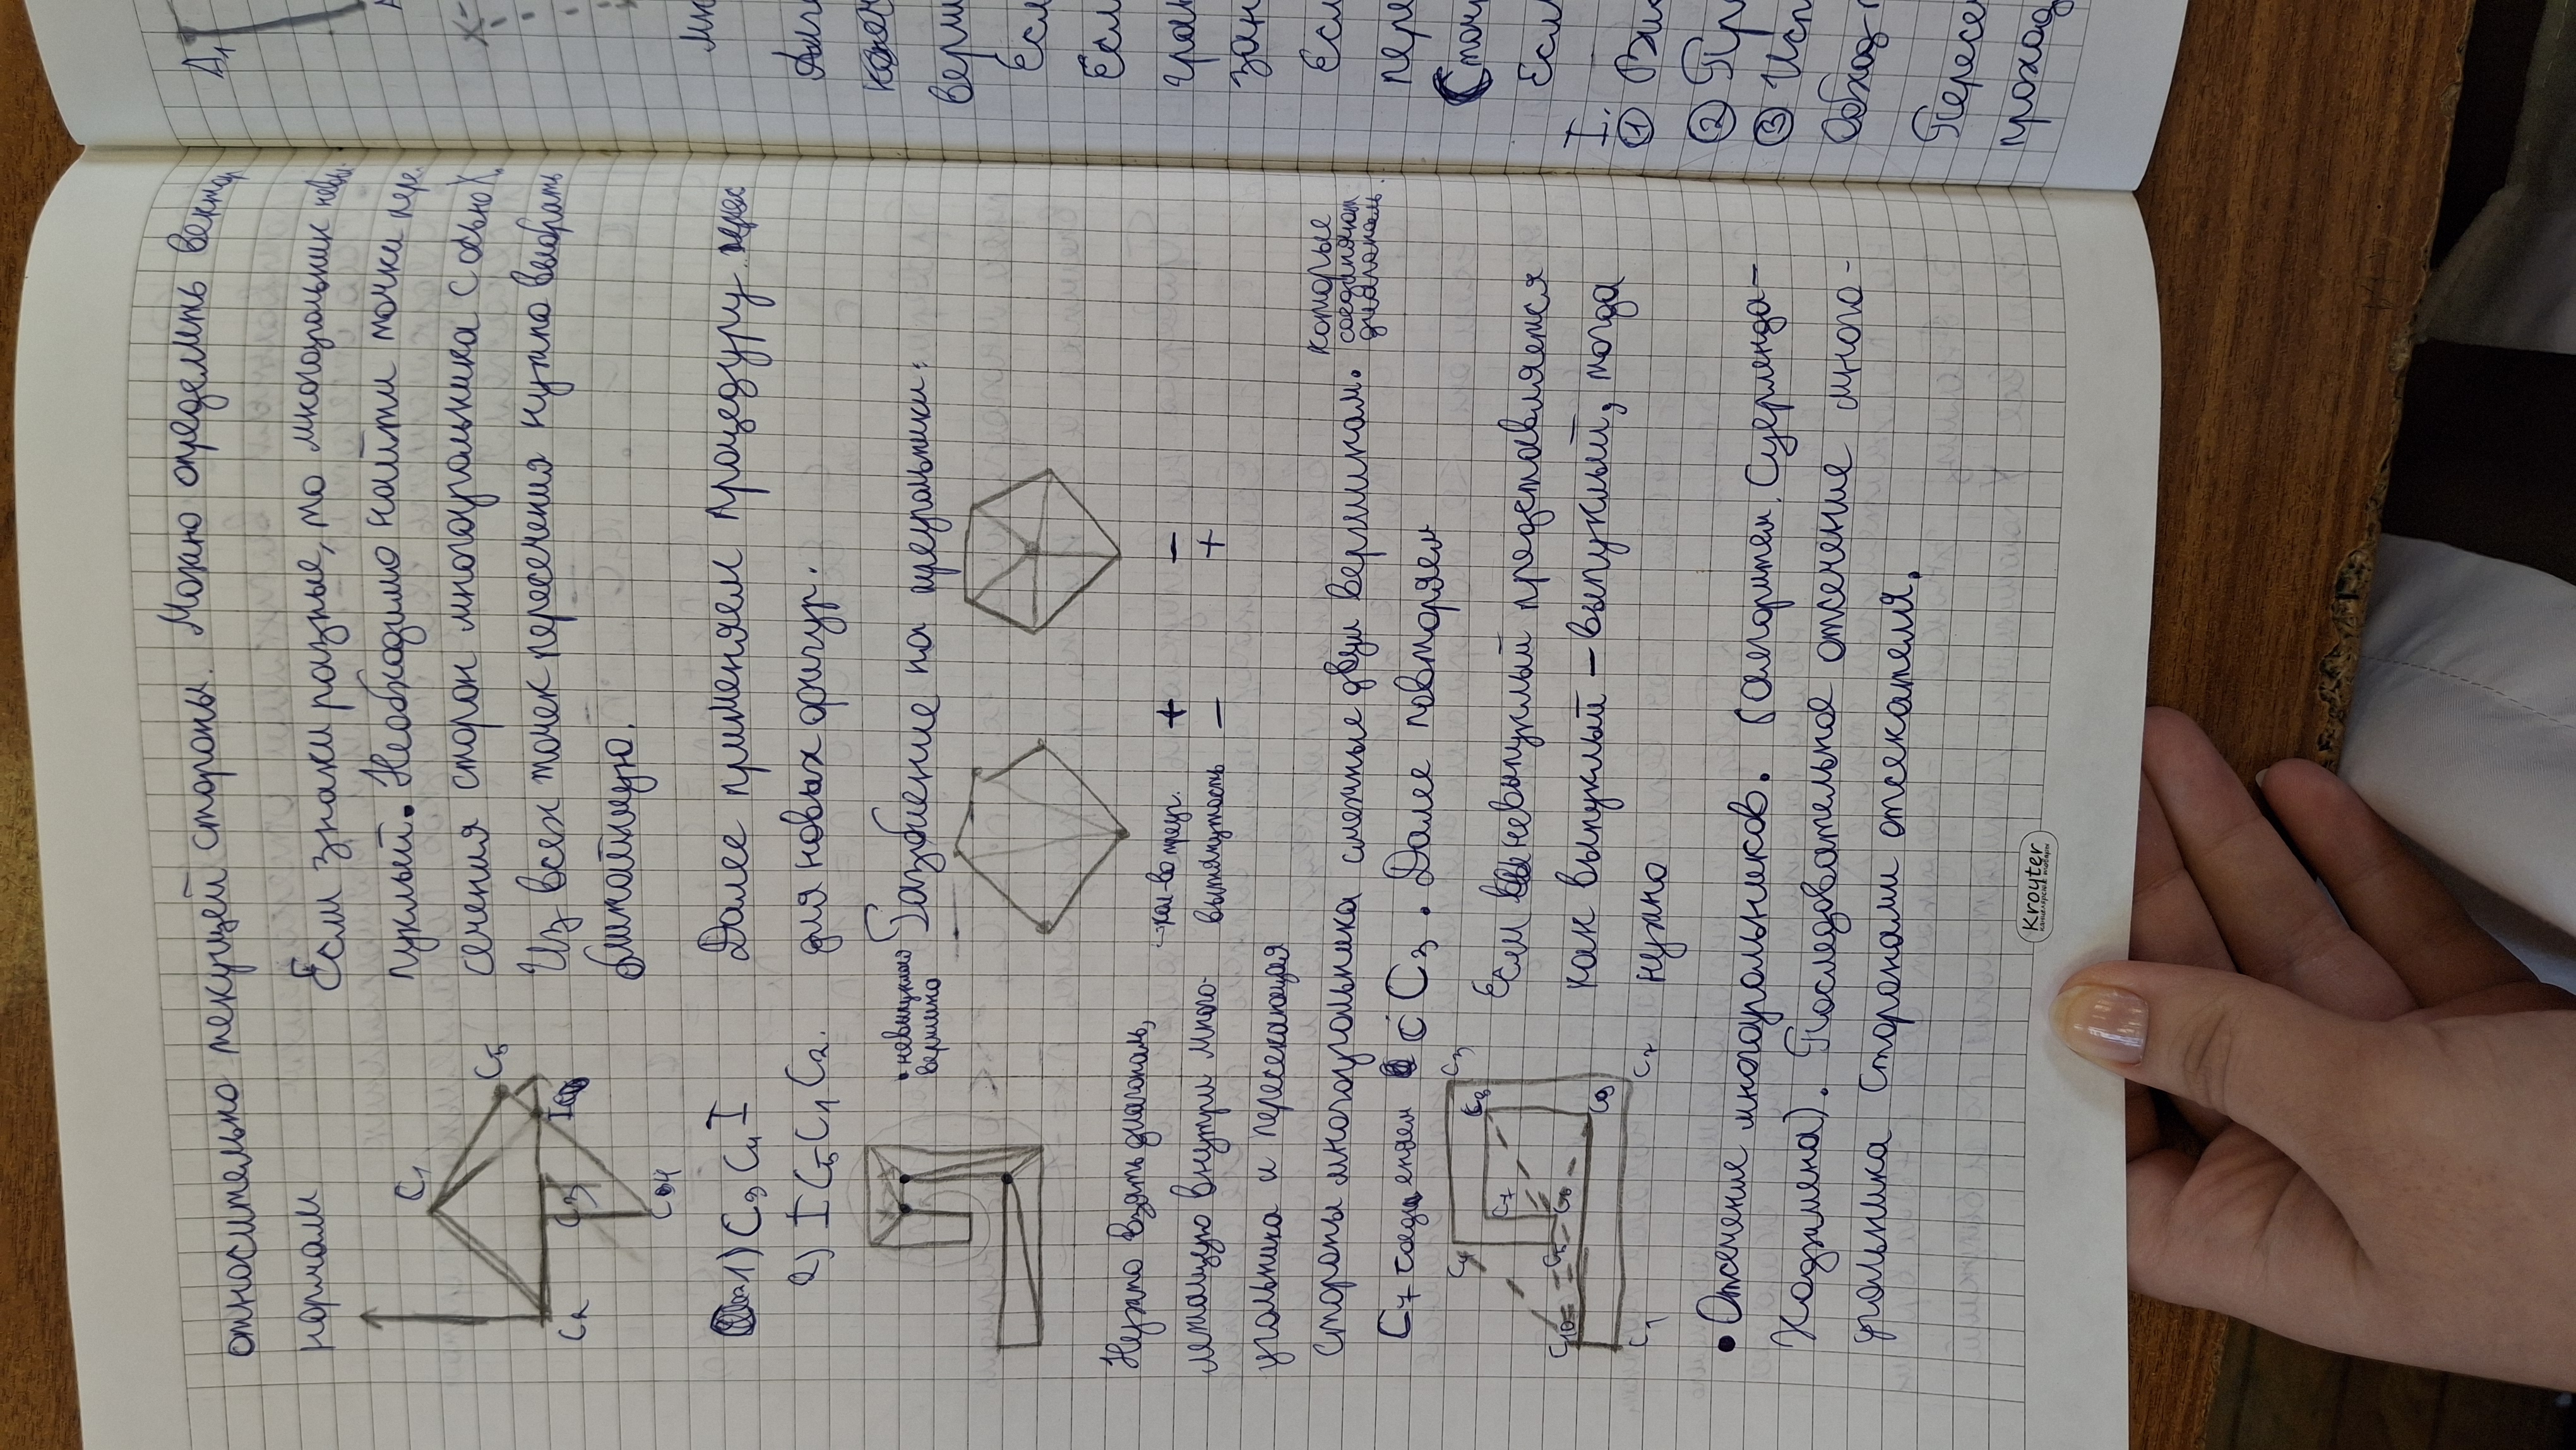 относительно текущей стороны. Можно определить вектор
нормали
Если знаки разные, то многоугольник невы-
пуклый. Необходимо найти точки пере-
сечения сторон многоугольника с осью X.
Из всех точек пересечения нужно выбрать
ближайшую.
C1
C5
C2
C3
I
C4
1) C3 C4 I
2) I C5 C1 C2.
Далее применяем процедуру
для новых фигур.
• невыпуклая
вершина
Разбиение на треугольники:
Нужно взять диагональ,
лежащую внутри много-
угольника и пересекающая
стороны многоугольника смежные двум вершинам.
которые
соединяют
диагональ.
кол-во треуг. + –
вытянутость – +
C7 соединяем с C3. Далее повторяем
C4
C3
C8
C7
C10
C5
C6
C9
C1
C2
Если невыпуклый представляется
как выпуклый – выпуклый, тогда
нужно
• Отсечение многоугольников. (алгоритм Сазерленда-
Ходжмена). Последовательное отсечение много-
угольника сторонами отсекателя.
Kroyter
канцелярские товары
A1
верш
Если
Если
гран
зан
Если
пере
Если
I.
①
② Пр
③ Исп
Обход
Пересе
проход